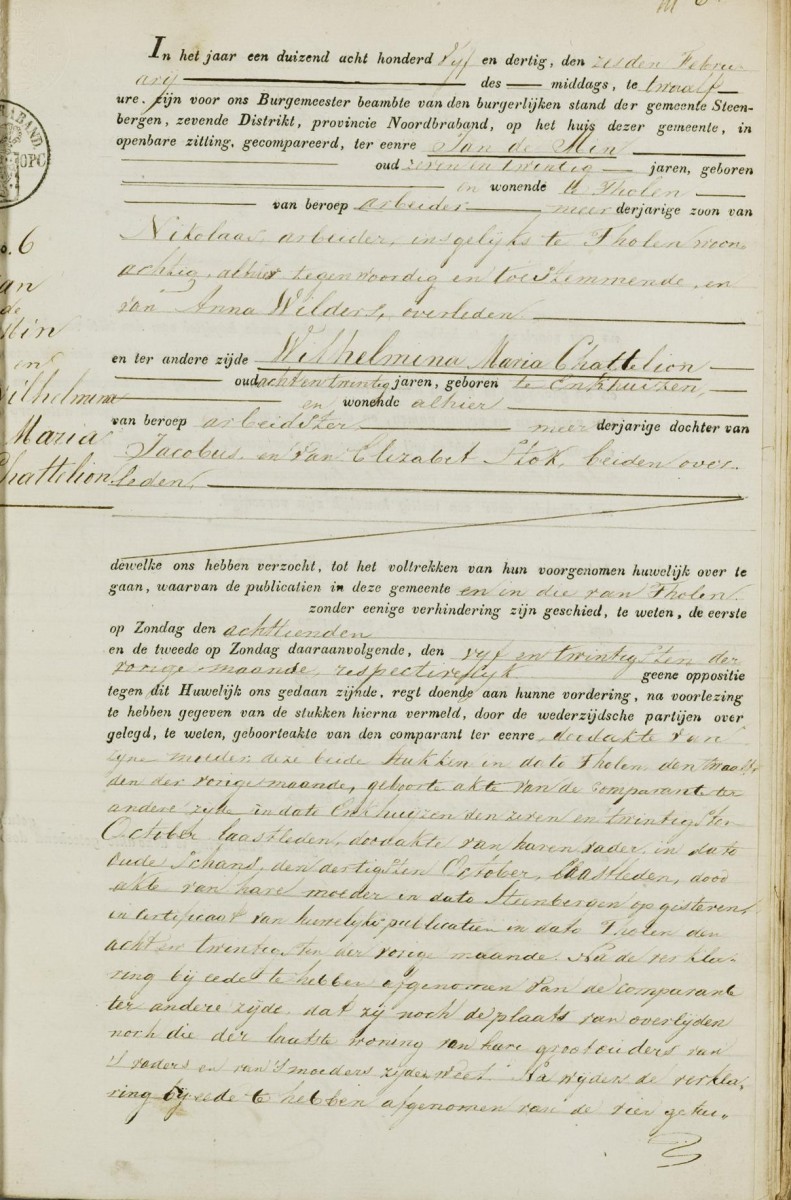 In het jaar een duizend acht honderd vijf en dertig, den zesden Febru-
arij des middags, te twaalf
ure, zijn voor ons Burgemeester beambte van den burgerlijken stand der gemeente Steen-
bergen, zevende Distrikt, provincie Noordbraband, op het huis dezer gemeente, in
openbare zitting, gecompareerd, ter eenre Jan de Min
oud zeven en twintig jaren, geboren
en wonende te Tholen
van beroep arbeider meerderjarige zoon van
Nikolaas, arbeider, insgelijks te Tholen woon-
achtig, alhier tegenwoordig en toestemmende, en
van Anna Wilders, overleden.
en ter andere zijde Wilhelmina Maria Chattelion
oud acht en twintig jaren, geboren te Enkhuizen,
en wonende alhier
van beroep arbeidster meerderjarige dochter van
Jacobus, en van Elizabet Stok, beiden over-
leden.
dewelke ons hebben verzocht, tot het voltrekken van hun voorgenomen huwelijk over te
gaan, waarvan de publicatien in deze gemeente en in die van Tholen
zonder eenige verhindering zijn geschied, te weten, de eerste
op Zondag den achttienden
en de tweede op Zondag daaraanvolgende, den vijf en twintigsten der
vorige maande, respectivelijk geene oppositie
tegen dit Huwelijk ons gedaan zijnde, regt doende aan hunne vordering, na voorlezing
te hebben gegeven van de stukken hierna vermeld, door de wederzijdsche partijen over
gelegd, te weten, geboorteakte van den comparant ter eenre, doodakte van
zijne moeder, deze beide stukken in dato Tholen den twaalf-
den der vorige maande, geboorte akte van de comparante ter
andere zijde in dato Enkhuizen den zeven en twintigsten
October laastleden, doodakte van haren vader, in dato
Oude Schans, den dertigsten October, laastleden, dood
akte van hare moeder in dato Steenbergen op gisteren,
en certificaat van huwelijks publicatien in dato Tholen den
acht en twintigsten der vorige maande. Na de verkla-
ring bij eede te hebben afgenomen van de comparante
ter andere zijde, dat zij noch de plaats van overlijden
noch die der laatste woning van hare grootouders van
's vaders en van 's moeders zijde weet. Na wijders de verkla-
ring bij eede te hebben afgenomen van de vier getui-
o. 6
an
de
Min
en
Wilhelmina
Maria
Chattelion